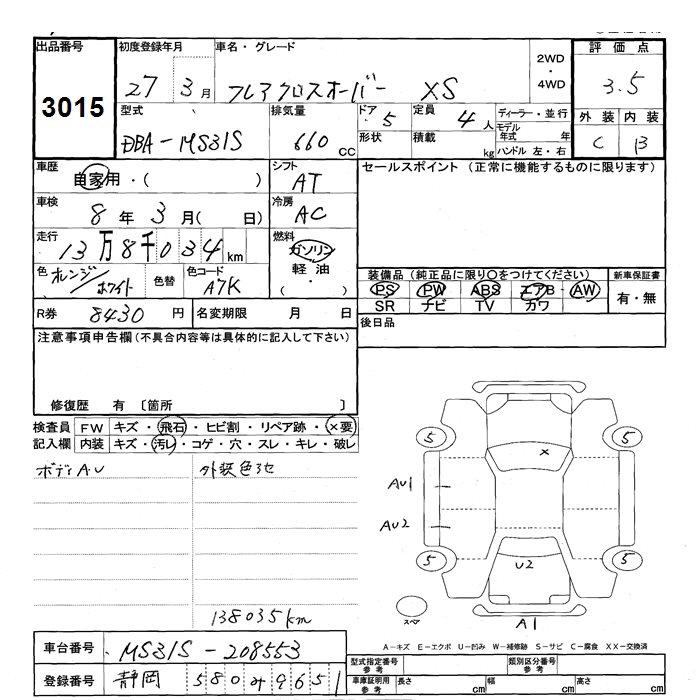 出品番号
3015
初度登録年月
27 3月
車名・グレード
フレアクロスオーバー XS
2WD
・
4WD
評価点
3.5
外装 内装
C B
型式
DBA-MS31S
排気量
660 CC
ドア 5
形状
定員 4人
積載 kg
ディーラー・並行
モデル年式 年
ハンドル 左・右
車歴
自家用・( )
シフト
AT
セールスポイント (正常に機能するものに限ります)
車検
8年 3月( 日)
冷房
AC
走行
13万8千034km
燃料
ガソリン
軽油
( ・ )
色 オレンジ/ホワイト
色替
色コード
A7K
装備品 (純正品に限り○をつけてください)
PS PW ABS エアB AW
SR ナビ TV カワ
新車保証書
有・無
R券 8430円
名変期限 月 日
後日品
注意事項申告欄 (不具合内容等は具体的に記入して下さい)
修復歴 有 〔箇所 〕
検査員 FW キズ・飛石・ヒビ割・リペア跡・×要
記入欄 内装 キズ・汚レ・コゲ・穴・スレ・キレ・破レ
ボディAU
外装色3セ
138035km
5 5
×
AU1
AU2
5 5
U2
スペア
A1
車台番号 MS31S-208553
登録番号 静岡 580 み 9651
A-キズ E-エクボ U-凹み W-補修跡 S-サビ C-腐食 XX-交換済
型式指定番号 参考
類別区分番号 参考
車庫証明用 参考
長さ cm
幅 cm
高さ cm